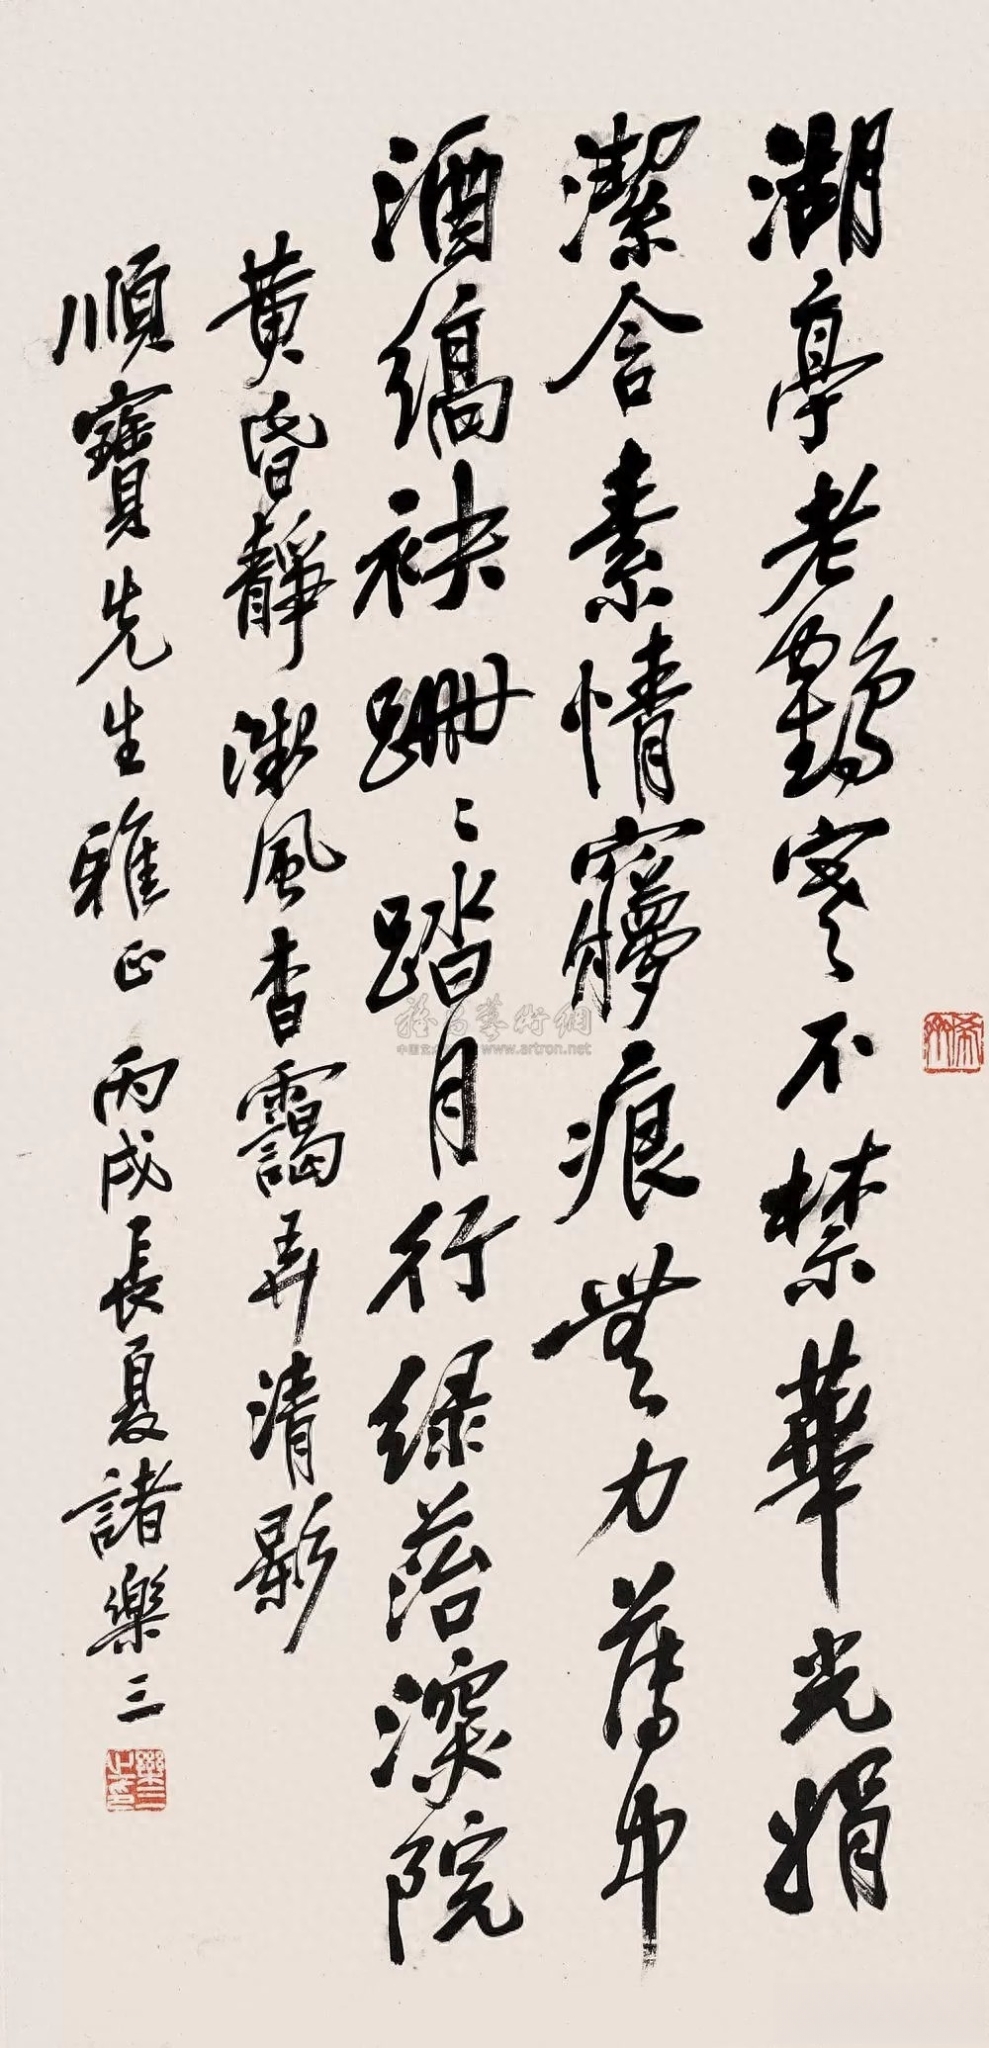 湖亭老鶴寒不禁華光娟
潔含素情㝱痕無力舊中
酒縞袂跚〻踏月行綠苔深院
黃昏靜微風香靄弄清影
順寶先生雅正 丙戌長夏諸樂三
希齋
雅昌藝術網
www.artron.net